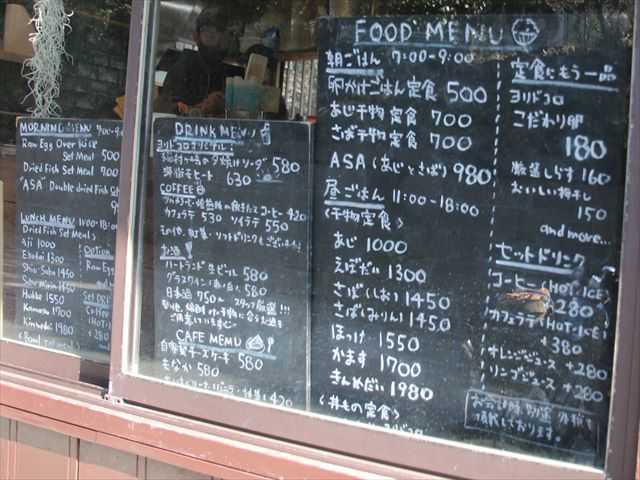 MORNING MENU
Raw Egg Over Rice
Set Meal 500
Dried Fish Set
Meal 700
"ASA" Double dried Fish
LUNCH MENU 11:00-18:00
Dried Fish Set Meals
Aji 1000
Ebodai 1300
Shio-Saba 1450
Saba-Mirin 1450
Hokke 1550
Kamasu 1700
Kinmedai 1980
Option
Raw Egg
Set DRINK
Coffee
(HOT・
+280
DRINK MENU
ヨリドコロオリジナル!
夕焼けソーダ 580
モヒート 630
COFFEE
コーヒー 420
カフェラテ 530 ソイラテ 550
その他、紅茶・ソフトドリンクもございます!
お酒!
ハートランド生ビール 580
グラスワイン(赤・白) 580
日本酒 750~ スタッフ厳選!!!
CAFE MENU
自家製チーズケーキ 580
もなか 580
420
FOOD MENU
朝ごはん 7:00-9:00
卵かけごはん定食 500
あじ干物定食 700
さば干物定食 700
ASA(あじとさば) 980
昼ごはん 11:00-18:00
〈干物定食〉
あじ 1000
えぼだい 1300
さば(しお) 1450
さば(みりん) 1450
ほっけ 1550
かます 1700
きんめだい 1980
〈丼もの定食〉
定食にもう一品
ヨリドコロ
こだわり卵
180
釜揚しらす 160
おいしい梅干し
150
and more...
セットドリンク
コーヒー(HOT・ICE)
+280
カフェラテ(HOT・ICE)
+380
オレンジジュース +280
リンゴジュース +280
頂戴しております。